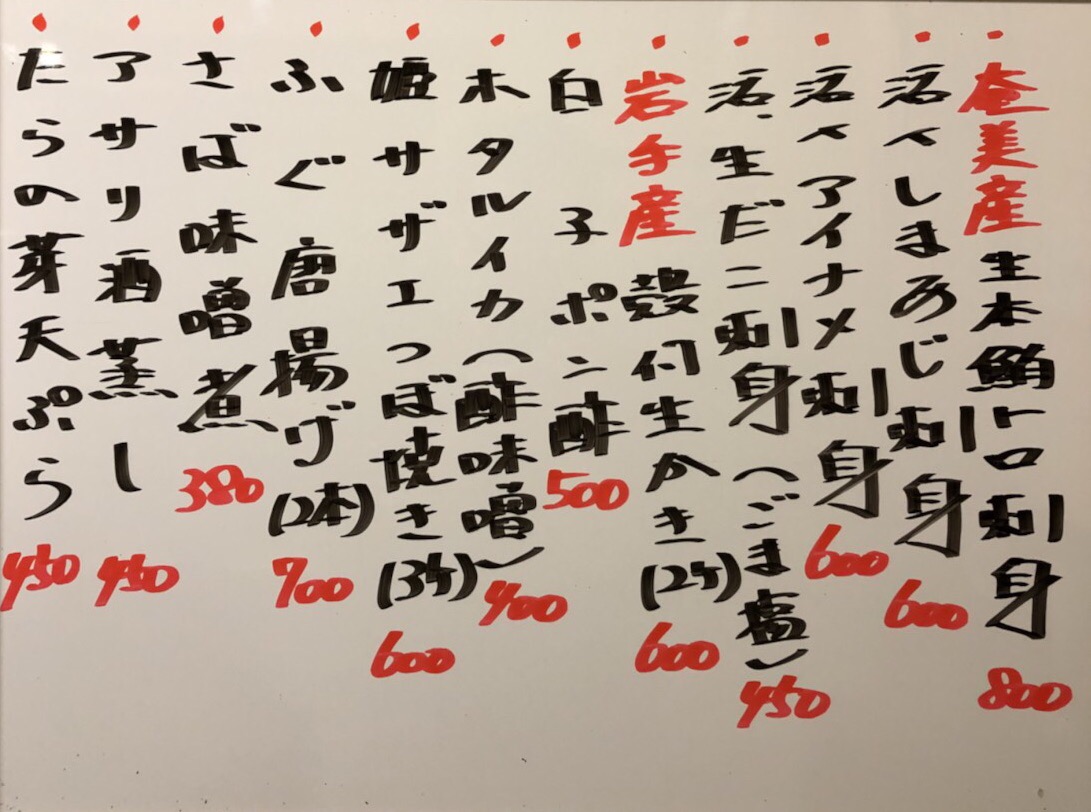 奄美産 生本鮪トロ刺身 800
活〆しまあじ刺身 600
活〆アイナメ刺身 600
活、生だこ刺身(ごま塩) 450
岩手産 殻付生かき(2ケ) 600
白子ポン酢 500
ホタルイカ(酢味噌) 400
姫サザエつぼ焼き(3ケ) 600
ふぐ唐揚げ(2本) 700
さば味噌煮 380
アサリ酒蒸し 450
たらの芽天ぷら 450